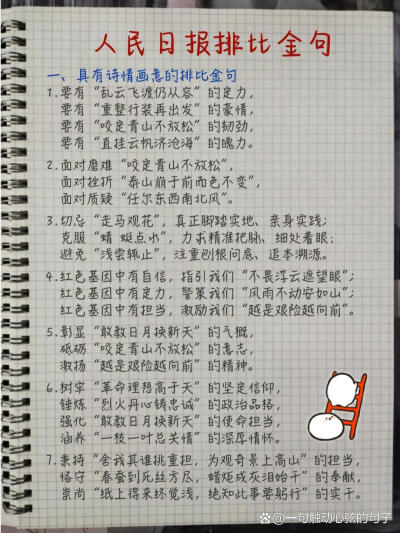 人民日报排比金句
一、具有诗情画意的排比金句
1.要有“乱云飞渡仍从容”的定力，
要有“重整行装再出发”的豪情，
要有“咬定青山不放松”的韧劲，
要有“直挂云帆济沧海”的魄力。
2.面对磨难“咬定青山不放松”，
面对挫折“泰山崩于前而色不变”，
面对质疑“任尔东西南北风”。
3.切忌“走马观花”，真正脚踏实地、亲身实践；
克服“蜻蜓点水”，力求精准把脉、细处着眼；
避免“浅尝辄止”，注重刨根问底、追本溯源。
4.红色基因中有自信，指引我们“不畏浮云遮望眼”；
红色基因中有定力，警策我们“风雨不动安如山”；
红色基因中有担当，激励我们“越是艰险越向前”。
5.彰显“敢教日月换新天”的气概，
砥砺“咬定青山不放松”的意志，
激扬“越是艰险越向前”的精神。
6.树牢“革命理想高于天”的坚定信仰，
锤炼“烈火丹心铸忠诚”的政治品格，
强化“敢教日月换新天”的使命担当，
涵养“一枝一叶总关情”的深厚情怀。
7.秉持“舍我其谁挑重担，为观奇景上高山”的担当，
恪守“春蚕到死丝方尽，蜡炬成灰泪始干”的奉献，
崇尚“纸上得来终觉浅，绝知此事要躬行”的实干。
@一句触动心弦的句子